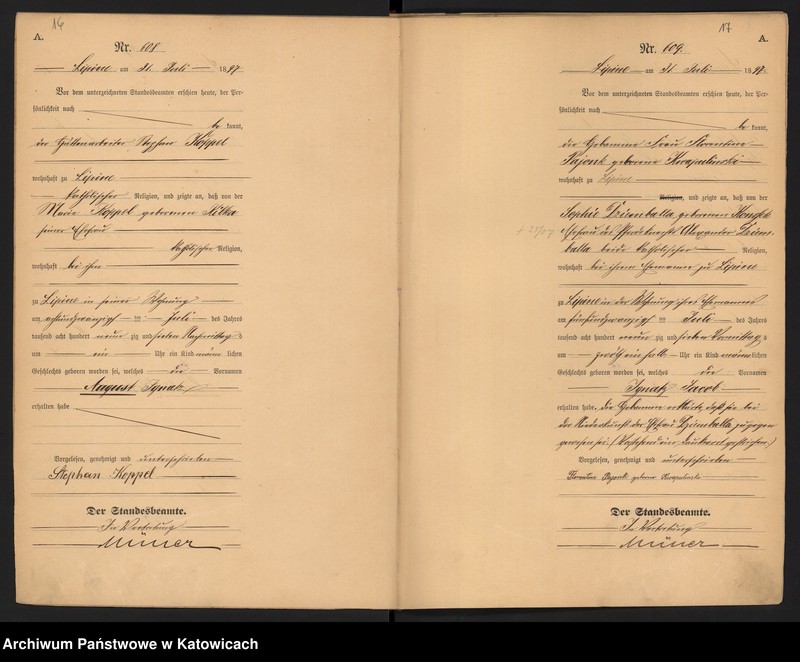 16
A.
Nr. 608
Lipine am 31. Juli 1897
Vor dem unterzeichneten Standesbeamten erschien heute, der Per-
sönlichkeit nach
be kannt,
der Hüttenarbeiter Stephan Koppel
wohnhaft zu Lipine
katholischer Religion, und zeigte an, daß von der
Marie Koppel geborenen
seiner Ehefrau
katholischer Religion,
wohnhaft bei ihm
zu Lipine in seiner Wohnung
am achtundzwanzigsten Juli des Jahres
tausend acht hundert neun zig und sieben Nachmittags
um ein Uhr ein Kind männlichen
Geschlechts geboren worden sei, welches die Vornamen
August Ignatz
erhalten habe
Vorgelesen, genehmigt und unterschrieben
Stephan Koppel
Der Standesbeamte.
In Vertretung
17
A.
Nr. 609.
Lipine am 31. Juli 1897.
Vor dem unterzeichneten Standesbeamten erschien heute, der Per-
sönlichkeit nach
be kannt,
die Hebamme Frau Florentine
Pajonk geborene Kwapulinski
wohnhaft zu Lipine
Religion, und zeigte an, daß von der
Sophie Dziemballa, geborenen
Ehefrau des Alexander Dziem-
balla beide katholischer Religion,
wohnhaft bei ihrem Ehemanne zu Lipine
zu Lipine in der Wohnung ihres Ehemannes
am fünfundzwanzigsten Juli des Jahres
tausend acht hundert neun zig und sieben Vormittags
um zwölf ein halb Uhr ein Kind männlichen
Geschlechts geboren worden sei, welches die Vornamen
Ignatz Jacob
erhalten habe. Die Hebamme erklärte, daß sie bei
der Niederkunft der Ehefrau Dziemballa zugegen
gewesen sei. (Vorstehend ein Druckwort gestrichen.)
Vorgelesen, genehmigt und unterschrieben
Florentine Pajonk geborene Kwapulinski
Der Standesbeamte.
In Vertretung
Archiwum Państwowe w Katowicach